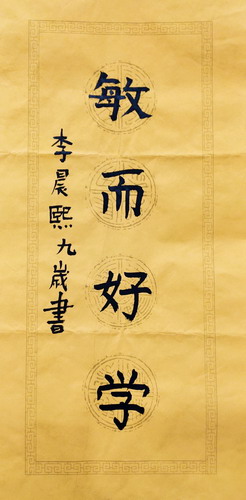 敏而好学
李晨熙九歲書